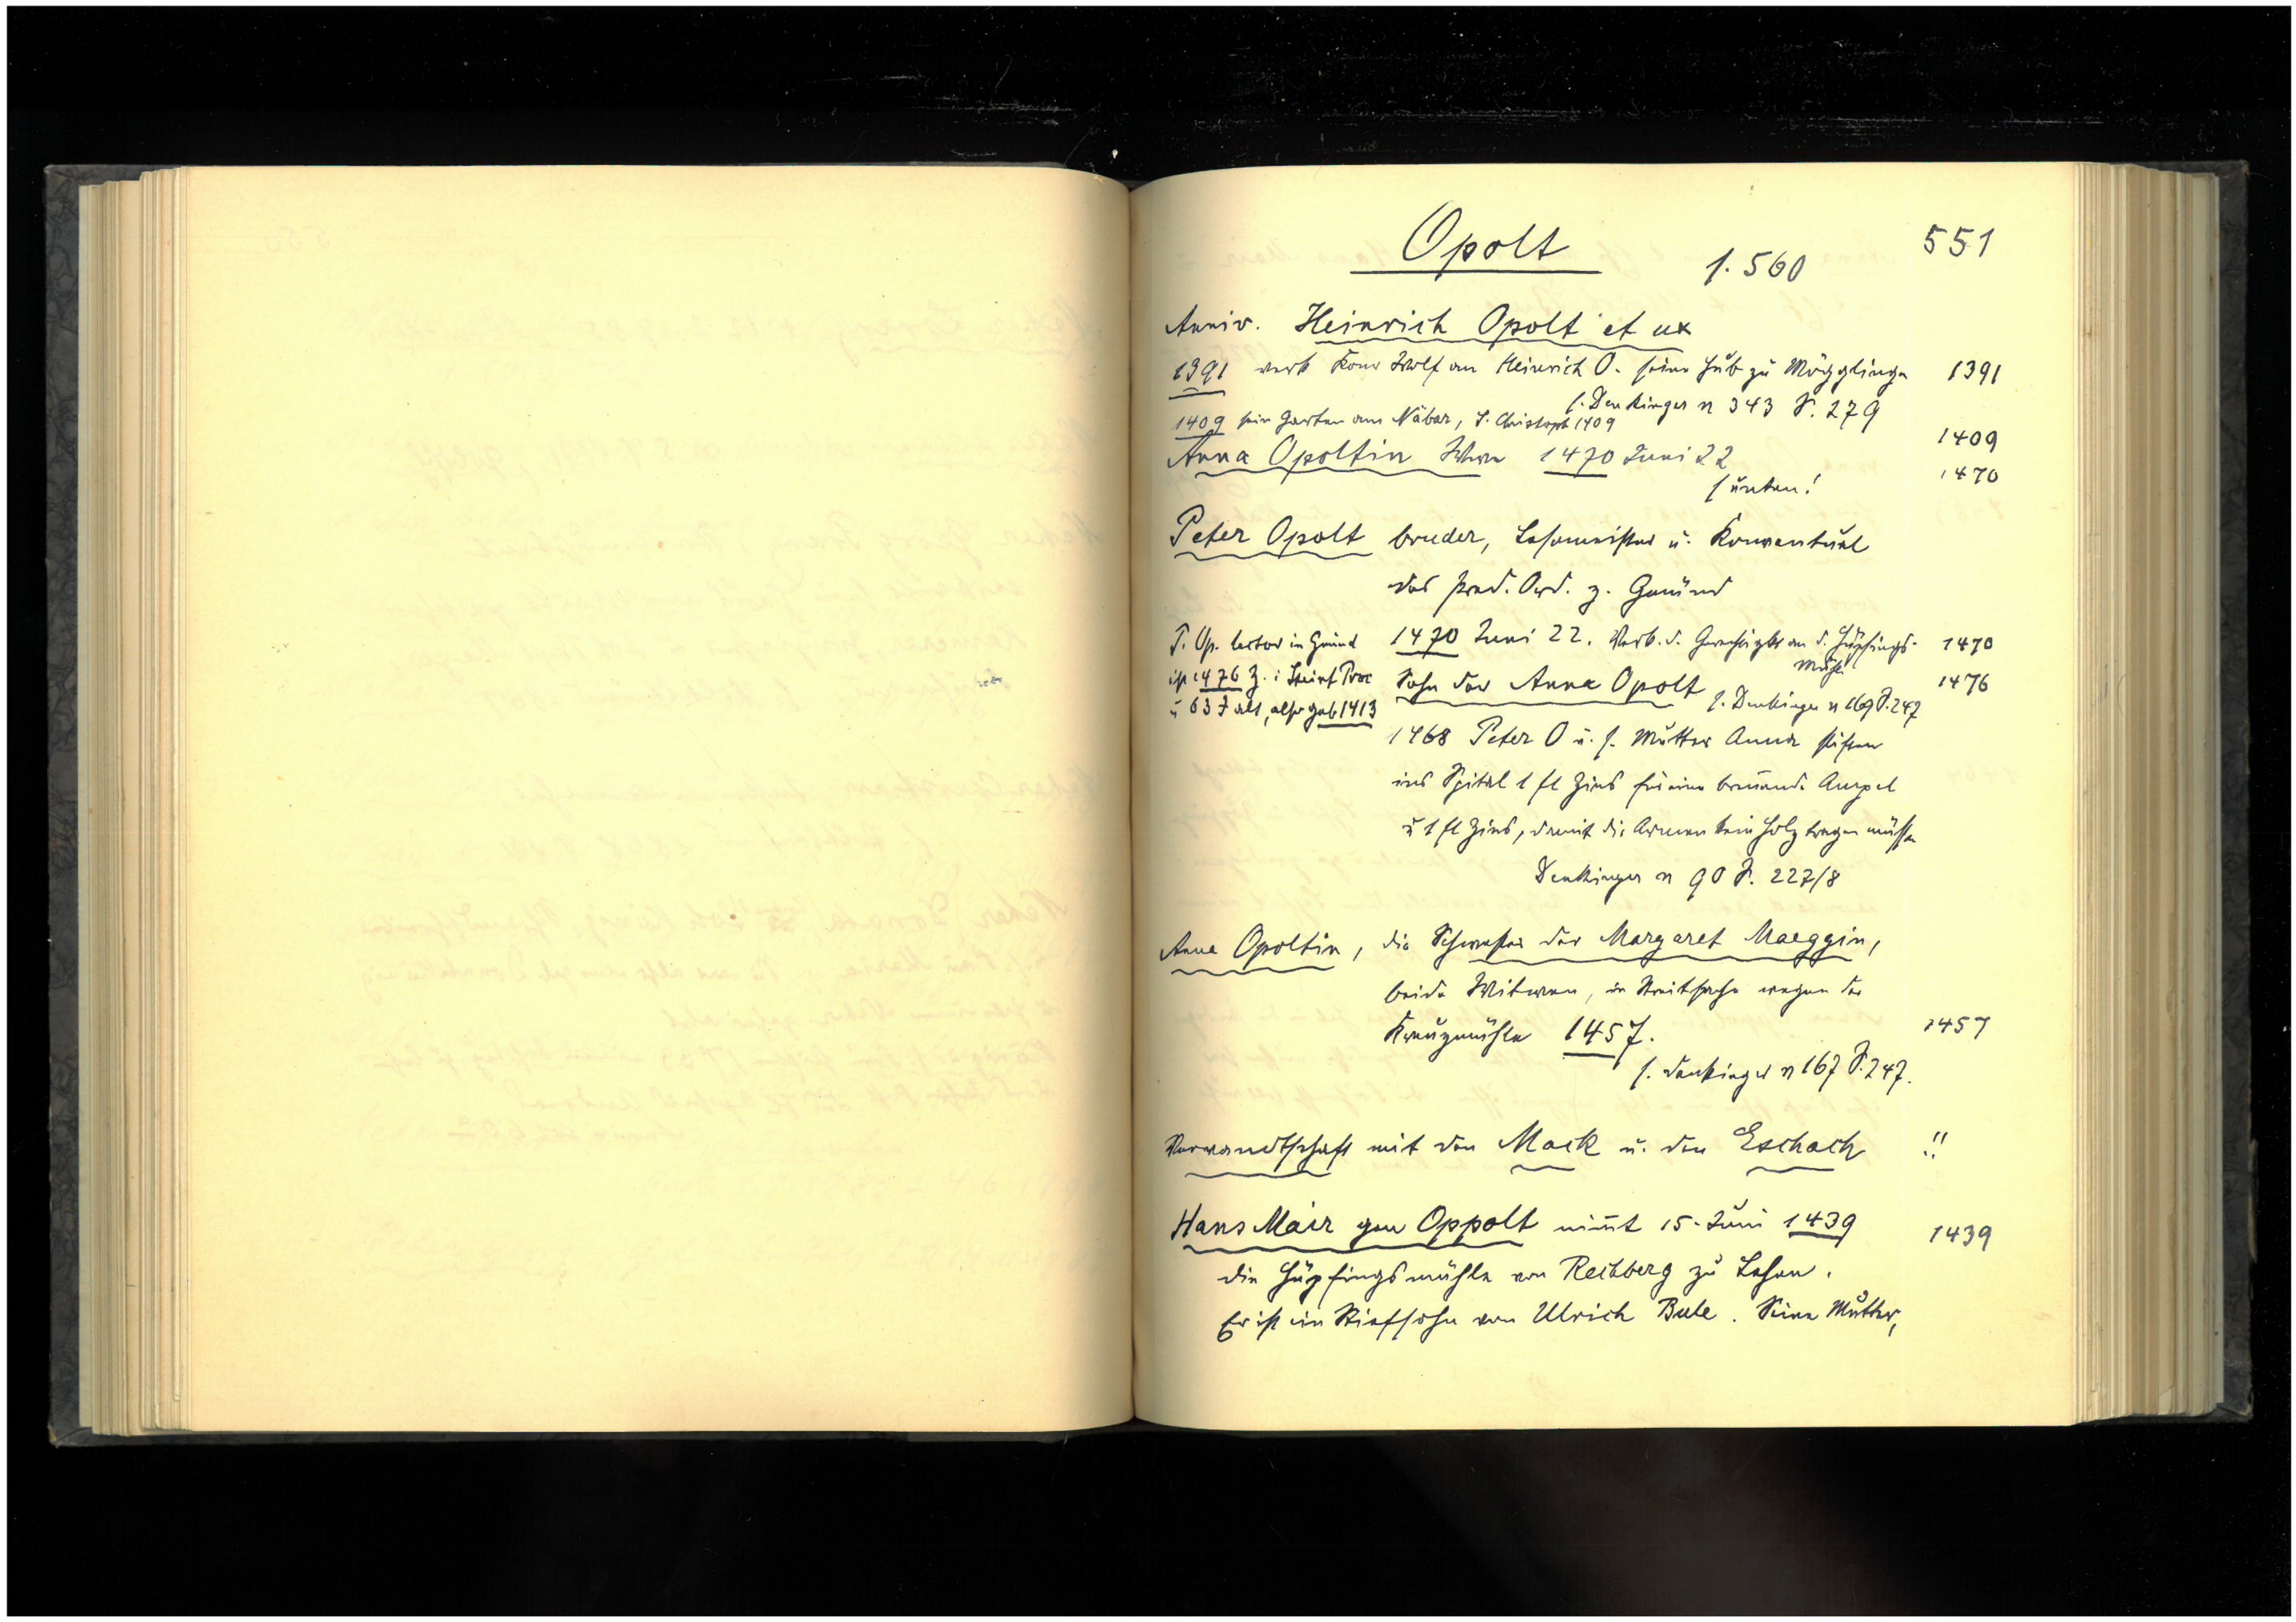 Opolt
551
s. 560
Anniv. Heinrich Opolt et ux
1391 verk Konr Wolf an Heinrich O. seine Hub zu Mögglingen 1391
s. Denkinger n 343 S. 279
1409 sein Garten am Näbar, S. Christoph 1409
1409
Anna Opoltin Wwe 1470 Juni 22
1470
s unten!
Peter Opolt bruder, Lesemeister u. Konventual
des Pred. Ord. z. Gmünd
1470 Juni 22. Verk. d. Gerechtigkt an d. Hüpfings- 1470
Mühle
P. Op. lector in Gmünd
ist 1476 Z. i
u 63 J alt, also geb 1413
Sohn der Anna Opolt 1476
s. Denkinger n 169 S. 247
1468 Peter O u. s. Mutter Anna stiften
ins Spital 1 fl Zins für eine brennende Ampel
u 1 fl Zins, damit die Armen kein Holz tragen müssen
Denkinger n 90 S. 227/8
Anna Opoltin, die Schwester der Margaret Maeggin,
beide Witwen, in Streitsache wegen der
Kreuzmühle 1457. 1457
s. Denkinger n 167 S. 247.
Verwandtschaft mit den Mack u. den Eschach !!
Hans Mair gen Oppolt nim̄t 15. Juni 1439 1439
die Hüpfingsmühle von Rechberg zu Lehen.
Er ist ein Stiefsohn von Ulrich Bule. Seine Mutter,